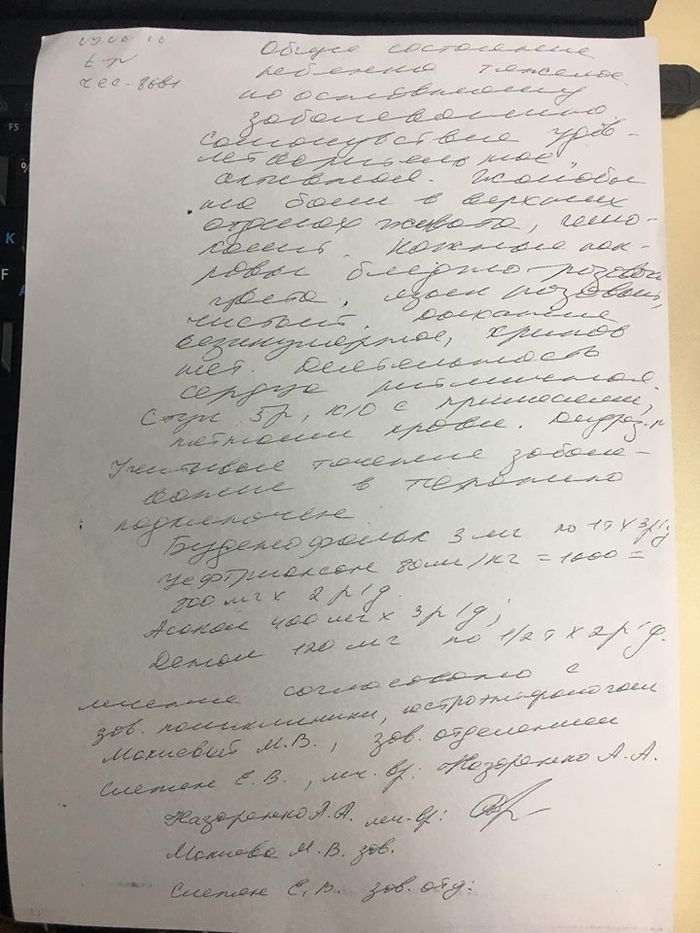 Общее состояние
ребенка тяжелое
по основному
заболеванию
самочувствие удов-
летворительное,
активная. Жалобы
на боли в верхних
отделах живота,
Кожные пок-
ровы бледно-розового
цвета, язык розовый,
чистый. Дыхание
везикулярное, хрипов
нет. Деятельность
сердца ритмичная.
Стул 3р, к/о с примесями,
крови.
Учитывая течение заболе-
вание в терапию
подключен
Буденофальк 3 мг по 1т х 3р/д
Цефтриаксон 80мг/кг = 1600 =
800 мг х 2 р/д.
Асакол 400 мг х 3 р/д,
Де-нол 120 мг по 1/2т х 2р/д.
лечение согласовано с
зав. поликлиники, гастроэнтерологом
Макиевой М.В., зав. отделением
Е.В., леч. вр: Назаренко А.А.
Назаренко А.А. леч. вр:
Макиева М.В. зав.
Е.В. зав. отд:
F5
%
K
F